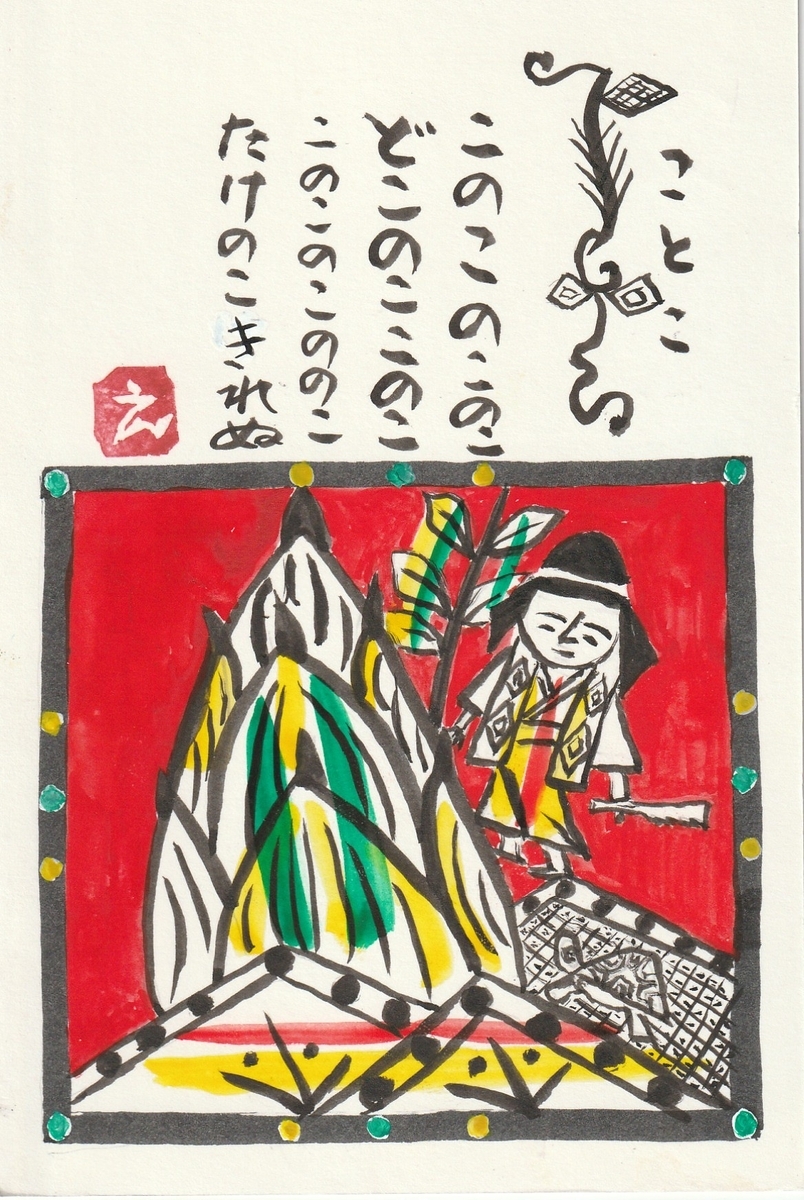 ことこ
このこのこのこ
どこのここのこ
このこのこののこ
たけのこきれぬ
え